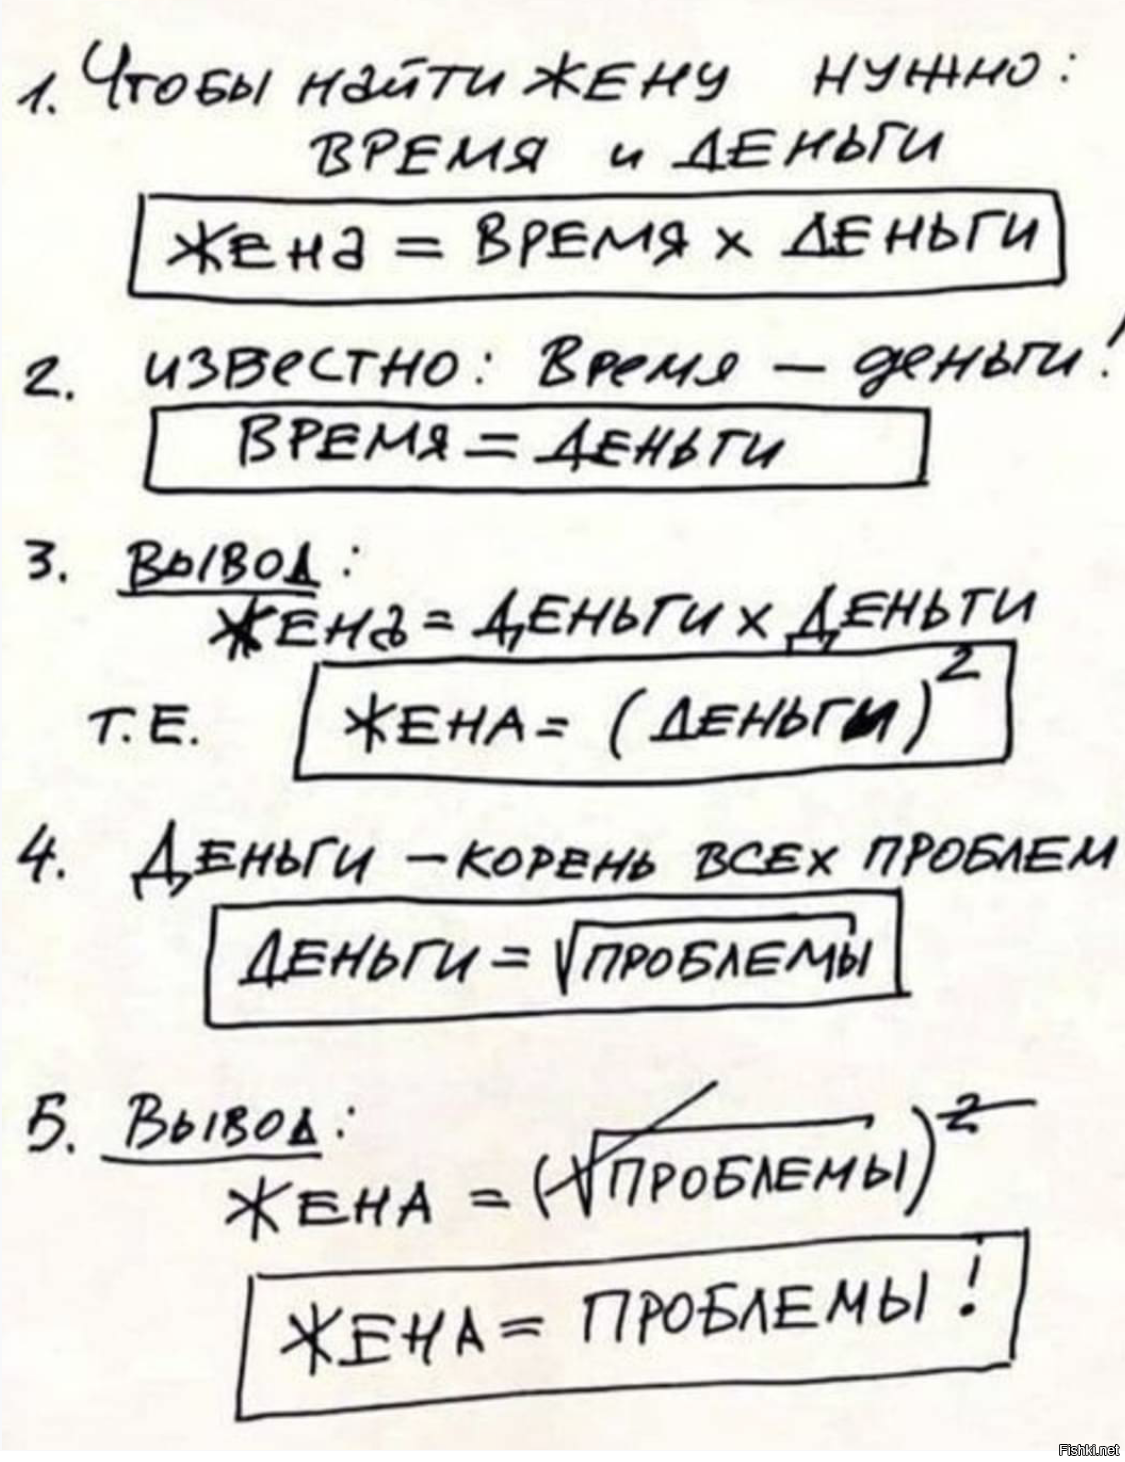 1. Чтобы найти жену нужно:
ВРЕМЯ и ДЕНЬГИ
Жена = ВРЕМЯ x ДЕНЬГИ
2. ИЗВЕСТНО: Время — деньги!
ВРЕМЯ = ДЕНЬГИ
3. Вывод:
ЖЕНа = ДЕНЬГИ x ДЕНЬГИ
Т.Е. ЖЕНА = (ДЕНЬГИ)²
4. Деньги – корень всех проблем
ДЕНЬГИ = √ПРОБЛЕМЫ
5. Вывод:
ЖЕНА = (√ПРОБЛЕМЫ)²
ЖЕНА = ПРОБЛЕМЫ!
Fishki.net